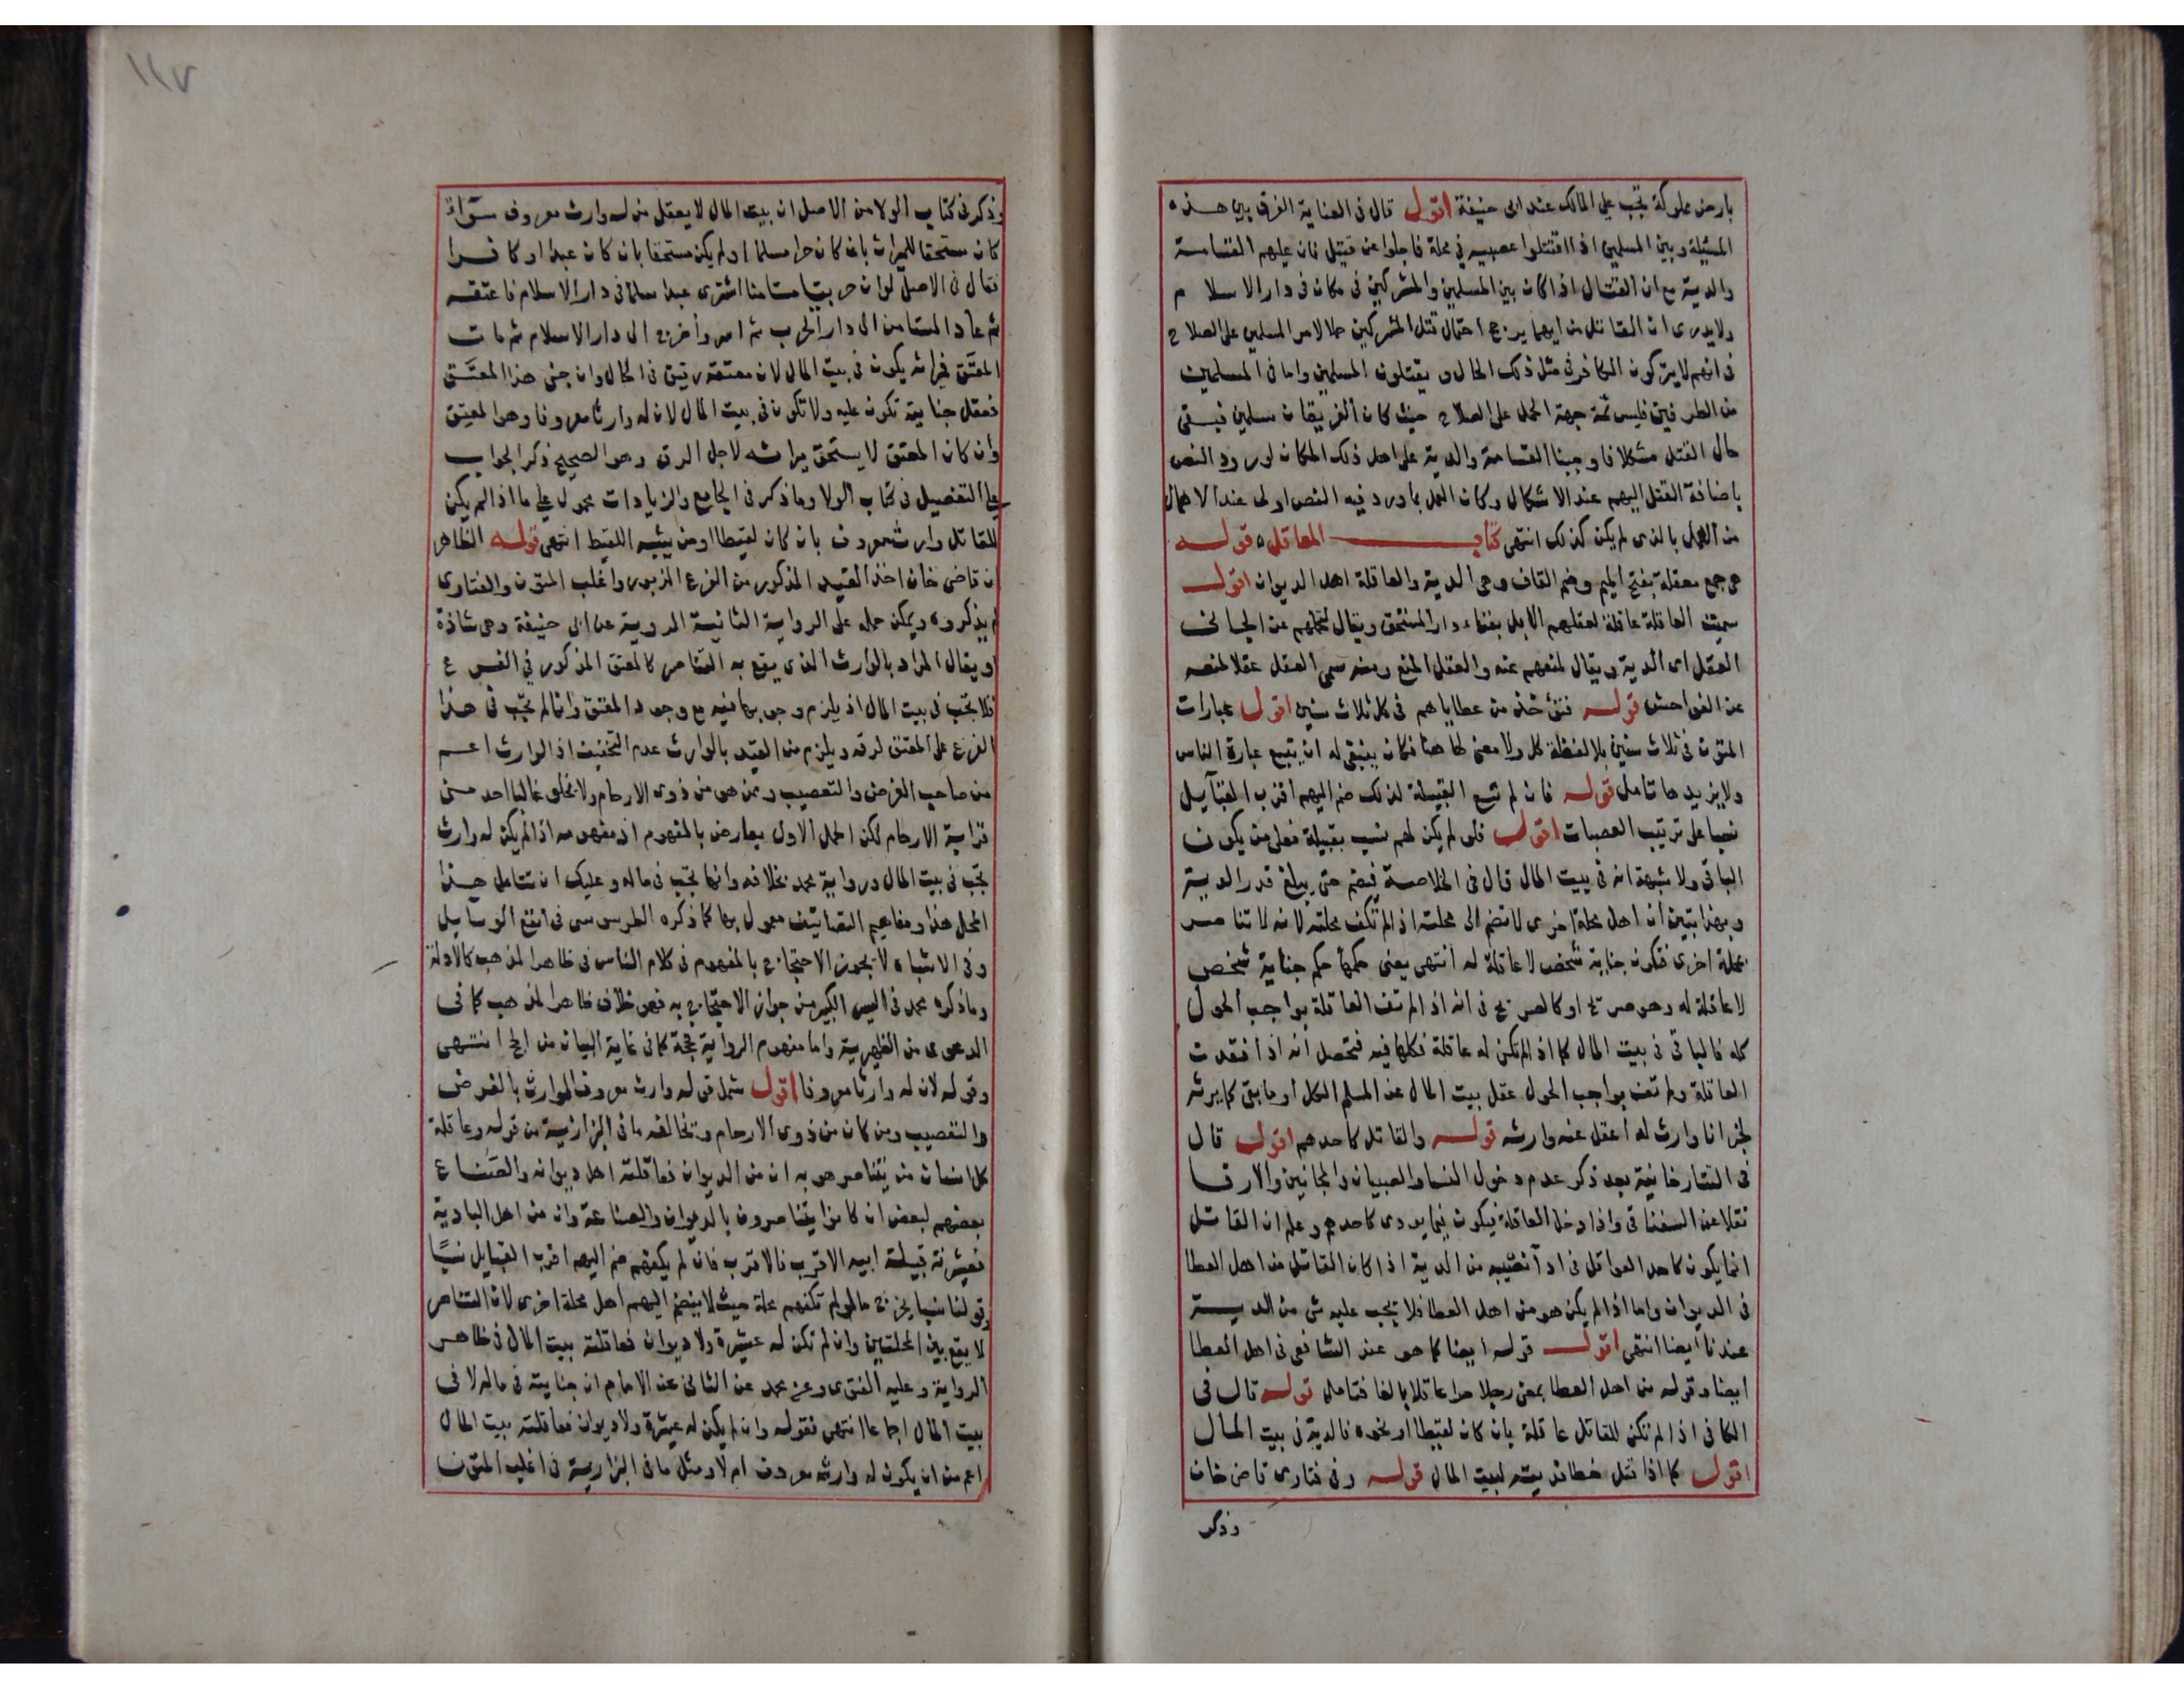 بارض مملوكة تجب على المالك عند ابى حنيفة اقول قال فى العناية الفرق بين هذه
المسئلة وبين المسلمين اذا اقتتلوا عصبية فى محلة فاجلوا عن قتيل فان عليهم القسامة
والدية مع ان القتال اذا كان بين المسلمين والمشركين فى مكان فى دار الاسلام
ولا يدرى ان القاتل من ايهما يرجح احتمال قتل المشركين حملا لامر المسلمين على الصلاح
فى انهم لا يتركون الكافر فى مثل ذلك الحال و يقتلون المسلمين واما فى المسلمين
من الطرفين فليس ثمة جهة الحمل على الصلاح حيث كان الفريقان مسلمين فبقى
حال القتل مشكلا فاوجبنا القسامة والدية على اهل ذلك المكان لورود النص
باضافة القتل اليهم عند الاشكال وكان العمل بما ورد فيه النص اولى عند الاحتمال
من العمل بالذى لم يكن كذلك انتهى كتاب المعاقل قوله
هى جمع معقلة بفتح الميم وضم القاف وهى الدية والعاقلة اهل الديوان اقول
سميت العاقلة عاقلة لعقلهم الابل بفناء دار المستحق ويقال لتحملهم عن الجانى
العقل اى الدية ويقال لمنعهم عنه والعقل المنع ومنه سمى العقل عقلا لمنعه
عن الفواحش قوله فتؤخذ من عطاياهم فى كل ثلاث سنين اقول عبارات
المتون فى ثلاث سنين بلا لفظة كل ولا معنى لها هنا فكان ينبغى له ان يتبع عبارة الناس
ولا يزيدها تامل قوله فان لم تتسع القبيلة لذلك ضم اليهم اقرب القبايل
نسبا على ترتيب العصبات اقول فلو لم يكن لهم نسب بقبيلة فعلى من يكون
الباقى ولا شبهة انه فى بيت المال قال فى الخلاصة فيضم حتى يبلغ قدر الدية
وبهذا تبين ان اهل محلة اخرى لا تضم الى محلته اذا لم تكف محلته لانه لا تناصر
بمحلة اخرى فتكون جناية شخص لا عاقلة له انتهى يعنى حكمها حكم جناية شخص
لا عاقلة له وهو صريح او كالصريح فى انه اذا لم تف العاقلة بواجب الحول
كله فالباقى فى بيت المال كما اذا لم تكن له عاقلة فكلها فيه فتحصل انه اذا فقدت
العاقلة ولم تف بواجب الحول عقل بيت المال عن المسلم الكل او ما بقى كما يرثه
لخبر انا وارث له اعقل عنه وارثه قوله والقاتل كاحدهم اقول قال
فى التتارخانية بعد ذكر عدم دخول النسا والصبيان والمجانين والارقا
نقلا عن السغناقى واذا دخل العاقلة فيكون فيما يودى كاحدهم وعلم ان القاتل
انما يكون كاحد العواقل فى ادآ نصيبه من الدية اذا كان القاتل من اهل العطا
فى الديوان واما اذا لم يكن هو من اهل العطا فلا يجب عليه شى من الدية
عندنا ايضا انتهى اقول قوله ايضا كما هو عند الشافعى فى اهل العطا
ايضا وقوله من اهل العطا يعنى رجلا حرا عاقلا بالغا فتامل قوله قال فى
الكافى اذا لم تكن للقاتل عاقلة بان كان لقيطا او نحوه فالدية فى بيت المال
اقول كما اذا قتل خطا فديته لبيت المال قوله وفى فتاوى قاضى خان
وذكر
١١٧
وذكر فى كتاب الولا من الاصل ان بيت المال لا يعقل من له وارث معروف سوآءً
كان مستحقا للميراث بان كان حرا مسلما او لم يكن مستحقا بان كان عبدا او كافرا
فقال فى الاصل لو ان حربيا مستامنا اشترى عبدا مسلما فى دار الاسلام فاعتقه
ثم عاد المستامن الى دار الحرب ثم اسر وأخرج الى دار الاسلام ثم مات
المعتَق فميراثه يكون فى بيت المال لان معتقه رقيق فى الحال وان جنى هذا المعتَق
فعقل جنايته تكون عليه ولا تكون فى بيت المال لان له وارثا معروفا وهو المعتِق
وأن كان المعتق لا يستحق ميراثه لاجل الرق وهو الصحيح ذكر الجواب
على التفصيل فى كتاب الولا وما ذكر فى الجامع والزيادات محمول على ما اذا لم يكن
للقاتل وارث معروف بان كان لقيطا او من يشبه اللقيط انتهى قوله الظاهر
ان قاضى خان اخذ القيد المذكور من الفرع المزبور واغلب المتون والفتاوى
لم يذكروه ويمكن حمله على الرواية الثانية المروية عن ابى حنيفة وهى شاذة
او يقال المراد بالوارث الذى يقع به التناصر كالمعتق المذكور فى الفرع
فلا تجب فى بيت المال اذ يلزم وجوبها فيه مع وجود المعتق وانما لم تجب فى هذا
الفرع على المعتق لرقه ويلزم من القيد بالوارث عدم التخفيف اذ الوارث اعم
من صاحب الفرض والتعصيب ومن هو من ذوى الارحام ولا يخلو غالبا احد من
قرابة الارحام لكن الحمل الاول يعارض بالمفهوم اذ مفهومه اذا لم يكن له وارث
تجب فى بيت المال ورواية محمد بخلافه وانها تجب فى ماله وعليك ان تتامل هذا
المحل هذا ومفاهيم التصانيف معمول بها كما ذكره الطرسوسى فى انفع الوسايل
وفى الاشباه لا يجوز الاحتجاج بالمفهوم فى كلام الناس فى ظاهر المذهب كالادلة
وما ذكره محمد فى السير الكبير من جواز الاحتجاج به فهو خلاف ظاهر المذهب كما فى
الدعوى من الظهيرية واما مفهوم الرواية فحجة كما فى غاية البيان من الحج انتهى
وقوله لان له وارثا معروفا اقول شمل قوله وارث معروف الوارث بالفرض
والتعصيب ومن كان من ذوى الارحام ويخالفه ما فى البزازية من قوله وعاقلة
كل انسان من يتناصر هو به ان من الديوان فعاقلته اهل ديوانه والصناع
بعضهم لبعض ان كانوا يتناصرون بالديوان والصناعة وان من اهل البادية
فعشرته قبيلة ابيه الاقرب فالاقرب فان لم يكفهم ضم اليهم اقرب القبايل نسبًا
وقولنا نسبا يخرج ما لو لم تكفهم محلة حيث لا ينضم اليهم اهل محلة اخرى لان التناصر
لا يقع بين المحلتين وان لم تكن له عشيرة ولا ديوان فعاقلته بيت المال فى ظاهر
الرواية وعليه الفتوى وعن محمد عن الثانى عن الامام ان جنايته فى ماله لا فى
بيت المال اجماعا انتهى فقوله وان لم يكن له عشيرة ولا ديوان فعاقلته بيت المال
اعم من ان يكون له وارث معروف ام لا ومثل ما فى البزازية فى اغلب المتون